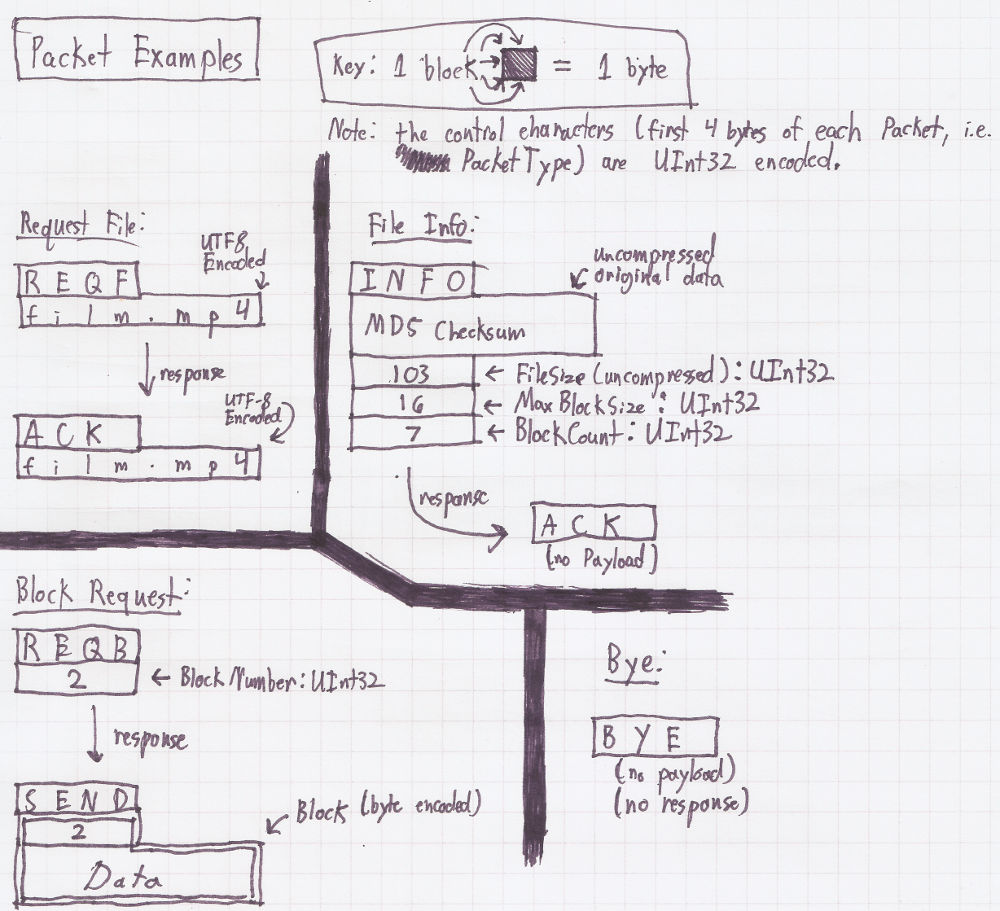 Packet Examples
Key: 1 block = 1 byte
Note: the control characters (first 4 bytes of each Packet, i.e.
PacketType) are UInt32 encoded.
Request File:
UTF8
Encoded
R E Q F
f i l m . m p 4
response
UTF-8
Encoded
A C K
f i l m . m p 4
File Info:
uncompressed
original data
I N F O
MD5 Checksum
103 ← FileSize (uncompressed): UInt32
16 ← MaxBlockSize: UInt32
7 ← BlockCount: UInt32
response
A C K
(no Payload)
Block Request:
R E Q B
2 ← BlockNumber: UInt32
response
S E N D
2
Block (byte encoded)
Data
Bye:
B Y E
(no payload)
(no response)